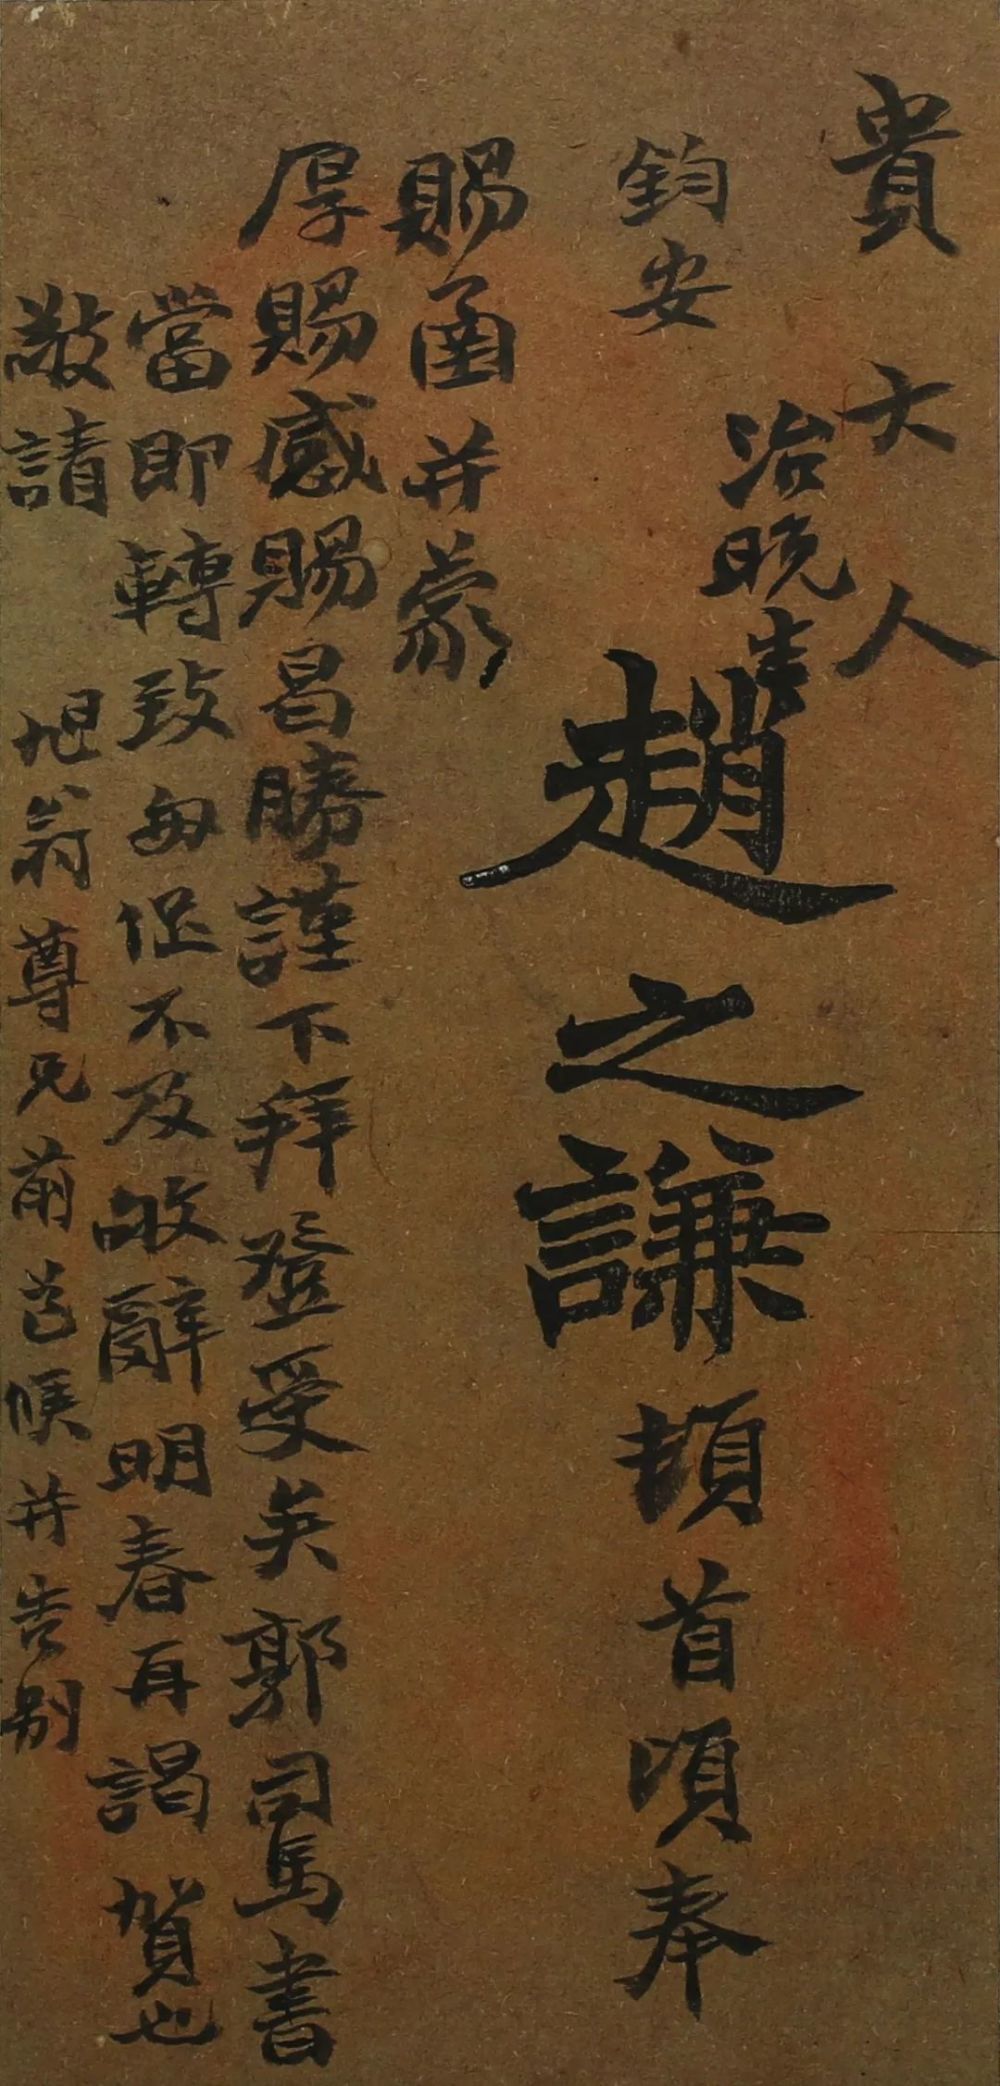 貴大人
治晚生
鈞安
趙之謙頓首頃奉
賜函并蒙
厚賜感賜昌勝謹下拜登受矣郭司馬書
當即轉致匆促不及敬辭明春再謁賀也
敬請
翁尊兄前道候并告别